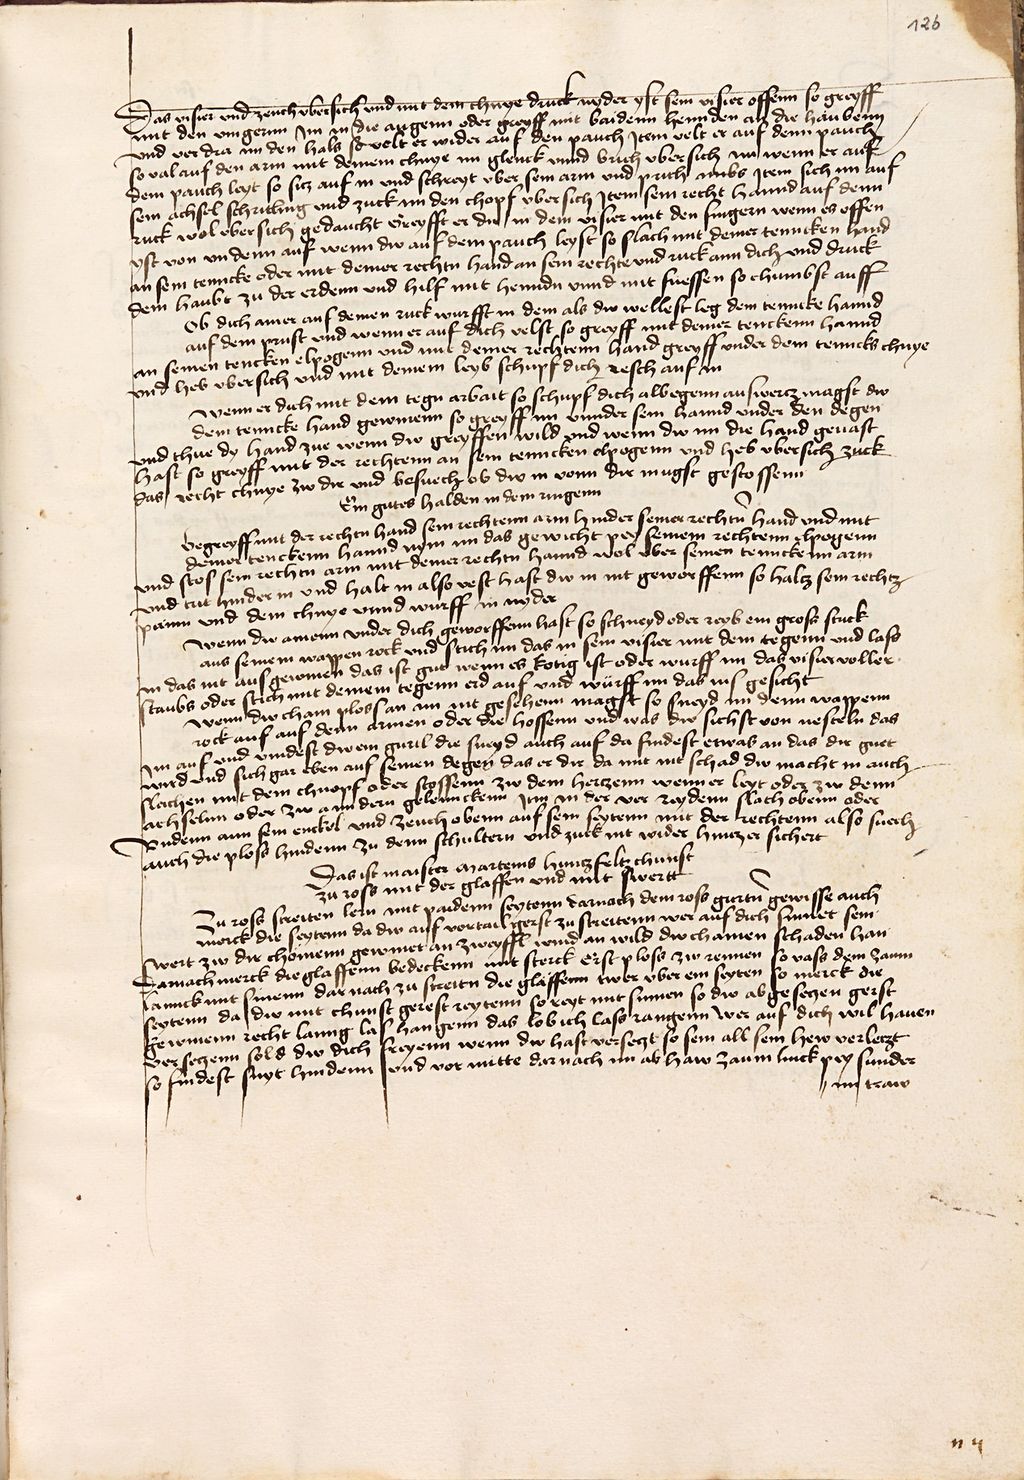 126
Das visier und zeuch ubersich und mit dem chnye druck nyder yst sein visier offenn so greyff
mit den vingernn Im in die augenn oder greyff mit baidenn hennden an die haubenn
und verdra im den hals so velt er wider auf den pauch Item velt er auf denn pauch
so val auf den arm mit deinem chnye im glenck unnd brich ubersich Im wenn er auf
dem pauch leyt so sicz auf in und schreyt uber sein arm und prich umbs Item sich im auf
sein achsel schritling und zuck im den chopf ubersich Item sein recht hannd auf denn
ruck wol ubersich gedaucht Greyfft er dir in dem visier mit den fingern wenn es offen
yst von undenn auf wenn dw auf dem pauch leyst so slach mit deiner tenncken hand
an sein tenncke oder mit deiner rechtn hand an sein rechte und ruck ann dich und druck
dem haubt zu der erdenn und hilf mit henndn unnd mit fuessen so chumbst auff
Ob dich ainer auf deinen ruck wurfft in dem als dw vellest leg dein tenncke hannd
auf dem prust und wenn er auf dich velst so greyff mit deiner tenckenn hannd
an seinen tencken elpogenn und mit deiner rechtenn hand greyff under dein tenncks chnye
und heb ubersich und mit deinem leyb schupf dich resch auf in
Wenn er dich mit dem tegn arbait so schupf dich albegenn auswercz magst dw
dein tenncke hand gewinnenn so greyff im unnder sein hannd under den degen
und thue dy hand zue wenn dw greyffen wild und wenn dw im die hand gevast
hast so greyff mit der rechtenn an sein tenncken elpogenn und heb ubersich zuck
das recht chnye zw dir und besuech ob dw in vonn dir mugst gestossenn
Ein guets halden in dem ringenn
Begreyff mit der rechtn hand sein rechtenn arm hinder seiner rechtn hand und mit
deiner tenckenn hannd nym im das gewicht pey seinem rechtenn elpogenn
und stos sein rechtn arm mit deiner rechtn hannd wol uber seinen tennckenn arm
und trit hinder in und halt in also vest hast dw in nit geworffenn so halcz sein rechtz
painn und dem chnye unnd wurff in nyder
Wenn dw ainenn under dich geworffenn hast so schneyd oder reyb ein gross stuck
aus seinem wappen rock und stich im das in sein visier mit dem tegenn und lass
in das nit ausgewinen das ist guet wenn es kotig ist oder wurff im das visier voller
staubs oder stich mit deinem tegenn erd auf und würff im das ins gesicht
Wenn dw chain ploss an im nit gesehenn magst so sneyd im denn wappenn
rock auf auf denn armen oder die hossenn und was dw sichst von nesteln das
Im auf und vindest dw ein gurtl die sneyd auch auf da findest etwas an das dir guet
wird und sich gar eben auf seinen degen das er dir da mit nit schad dw macht in auch
slachen mit dem chnopf oder stossenn zw dem herczenn wenn er leyt oder zw denn
achselnn oder zw anndern gelennckenn Im in der ver reydenn slach obenn oder
undenn ann sein enckel und zeuch obenn auf sein seytenn mit der rechtenn also suech
auch die ploss hindenn zu denn schultern und zuck nit wider hincz er sichert
Das ist maister Marteins huntzfeltz chunst
zu ross mit der glaffen und mit swertt
Zu ross streiten lern mit paidenn seytenn darnach dem ross gurtn gewisse auch
merck die seytenn da dw auf vortail gerst zu streitenn wer auf dich sinnet sein
wert zw dir chömenn gewinnet an zweyffl wind an wild dw chainen schaden han
Darnach merck die glaffenn bedeckenn mit sterck Erst ploss zw rennen so vass dem zaum
tannck mit sinenn darnach zu streitn die glaffenn twer uber ein seyten so merck die
seytenn da dw mit chunst gerest reytenn so reyt mit sinnen so dw abgesetzen gerst
gewinenn recht lanng las hangenn das lob ich lass rangenn Wer auf dich wil hauen
versetzenn sold dw dich freyenn wenn dw hast versetzt so sein all sein hew verletzt
so findest snyt hindenn und vor mitte darnach im ab haw zaum linck pey sunder
im traw
n 4